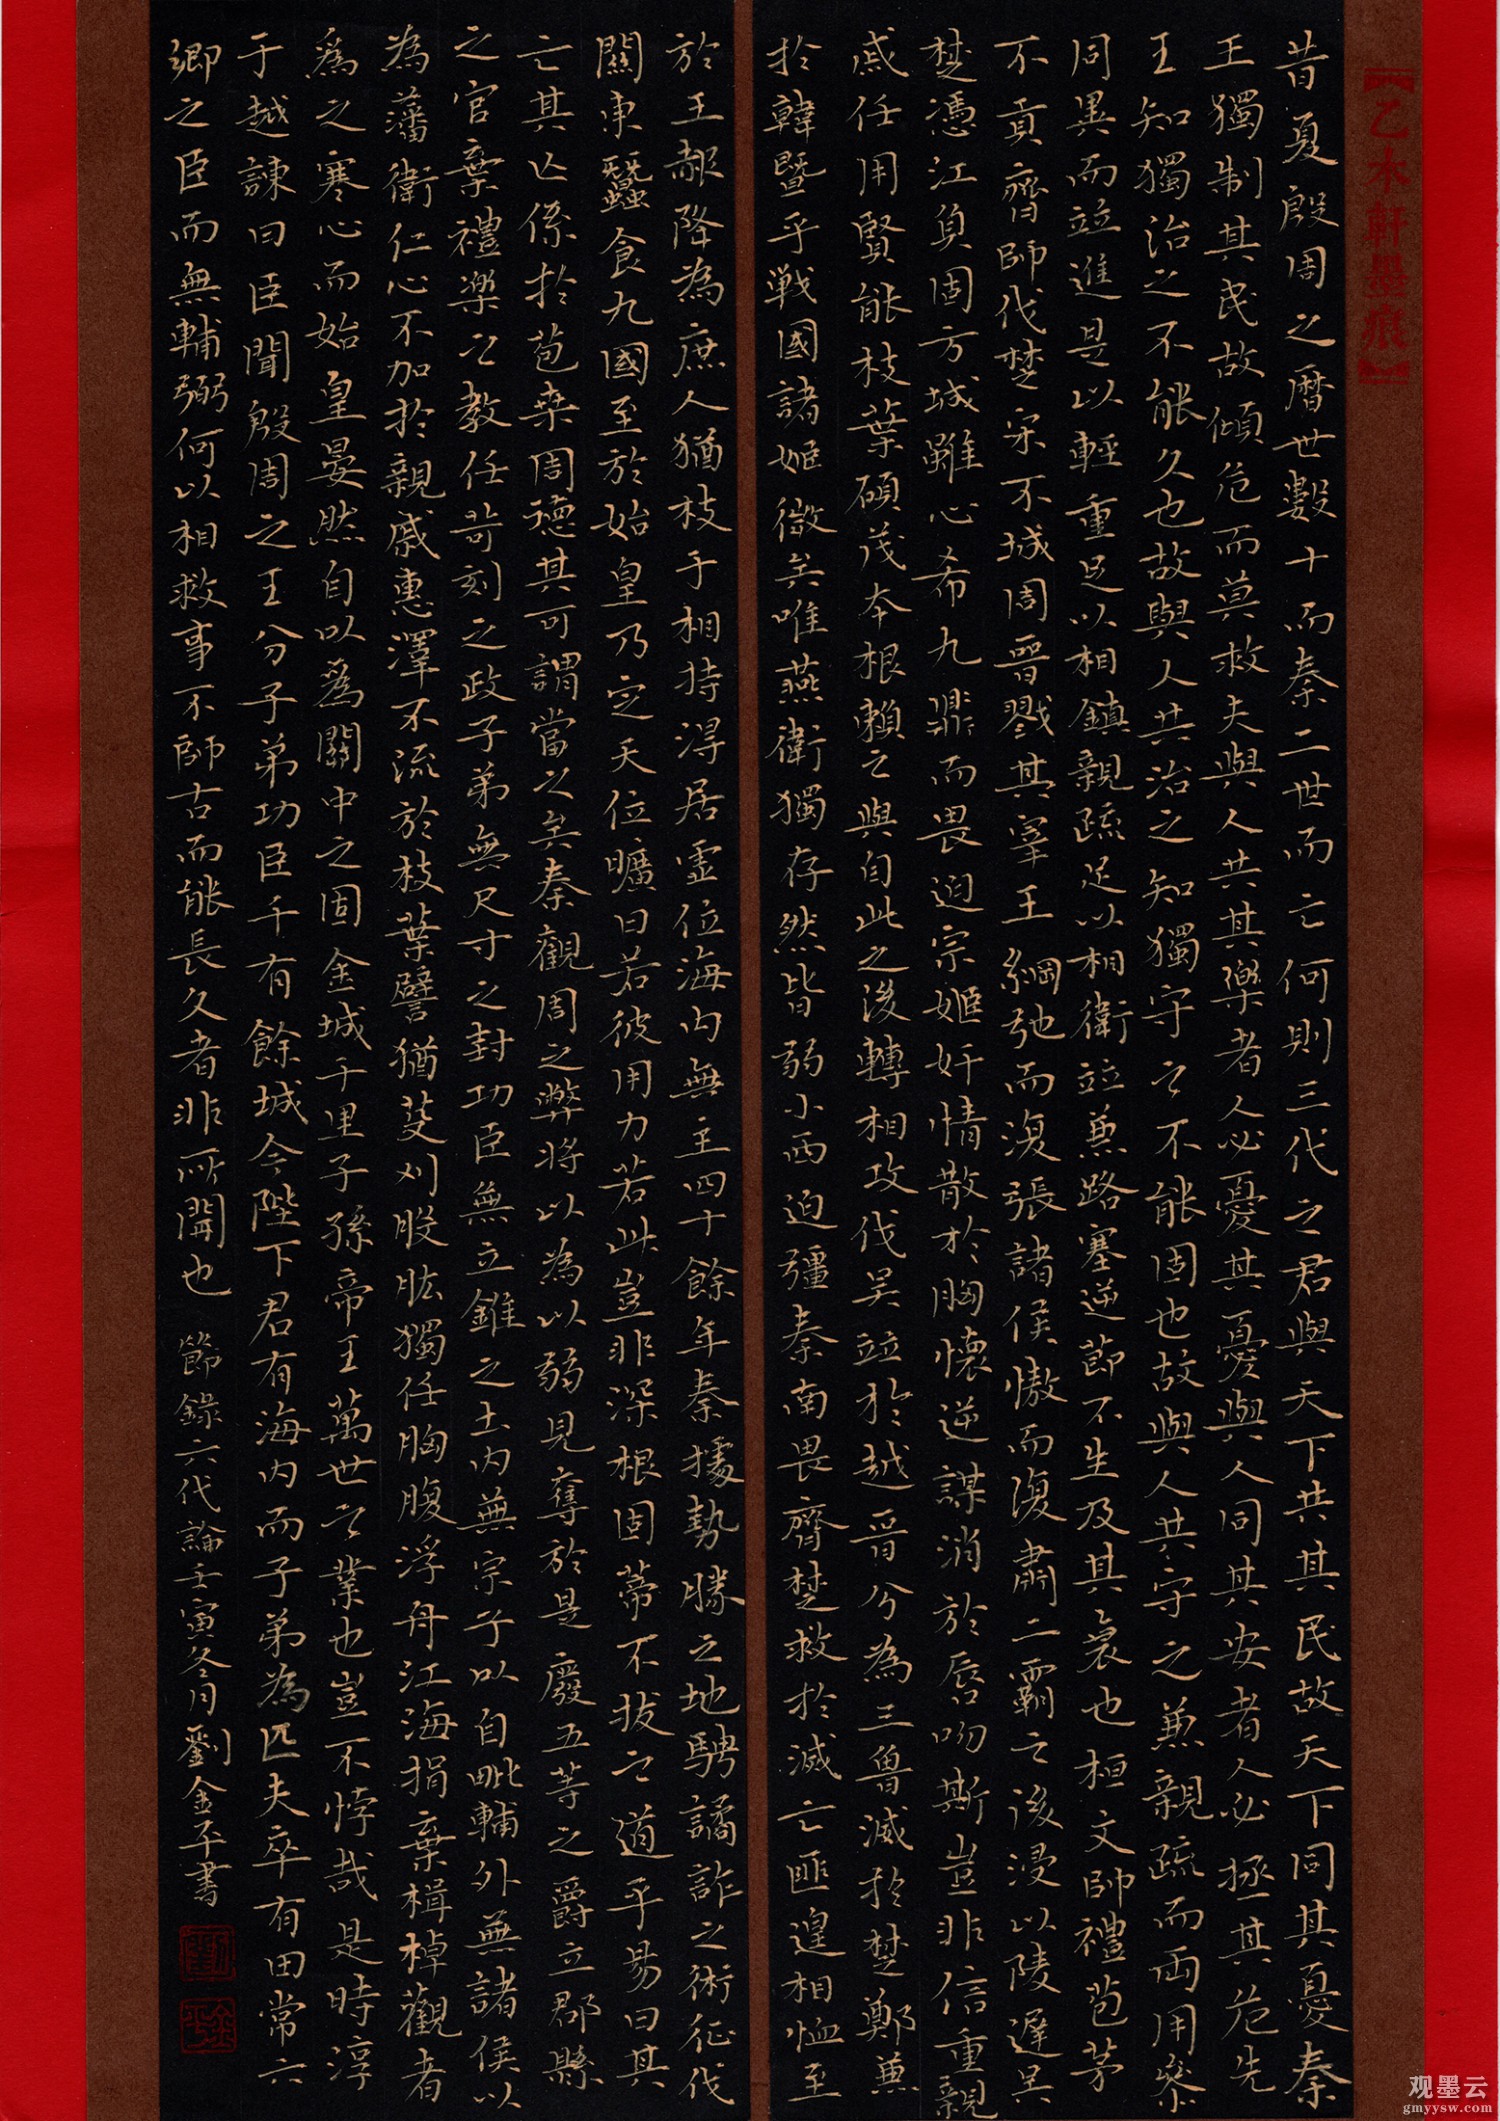 【乙木軒墨痕】
昔夏殷周之曆世數十而秦二世而亡何則三代之君與天下共其民故天下同其憂秦
王獨制其民故傾危而莫救夫與人共其樂者人必憂其憂與人同其安者人必拯其危先
王知獨治之不能久也故與人共治之知獨守之不能固也故與人共守之兼親疏而両用參
同異而竝進是以輕重足以相鎮親疏足以相衛竝兼路塞逆節不生及其衰也桓文帥禮苞茅
不貢齊師伐楚宋不城周晉戮其宰王綱弛而復張諸侯慠而復肅二霸之後浸以陵遲吳
楚憑江負固方城雖心希九鼎而畏迫宗姬奸情散於胸懷逆謀消於唇吻斯豈非信重親
戚任用賢能枝葉碩茂夲根賴之與自此之後轉相攻伐吳竝於越晉分為三魯滅於楚鄭兼
扵韓暨乎戦國諸姬微矣唯燕衛獨存然皆弱小西迫彊秦南畏齊楚救扵滅亡匪遑相恤至
於王赧降為庶人猶枝于相持淂居虛位海內無主四十餘年秦據勢勝之地騁譎詐之術征伐
關東蠶食九國至於始皇乃定天位曠日若彼用力若此豈非深根固蒂不拔之道乎易曰其
亡其亡係扵苞桑周德其可謂當之矣秦觀周之弊将以為以弱見奪於是廢五等之爵立郡縣
之官棄禮樂之教任苛刻之政子弟無尺寸之封功臣無立錐之土内無宗子以自毗輔外無諸侯以
為藩衛仁心不加扵親戚惠澤不流於枝葉譬猶芟刈股肱獨任胸腹浮舟江海捐棄楫棹觀者
為之寒心而始皇晏然自以爲關中之固金城千里子孫帝王萬世之業也豈不悖哉是時淳
于越諫曰臣聞殷周之王分子弟功臣千有餘城今陛下君有海内而子弟為匹夫卒有田常六
卿之臣而無輔弼何以相救事不師古而能長久者非所聞也 節錄六代論壬寅冬月劉金平書
劉
金平
观墨云
gmyysw.com